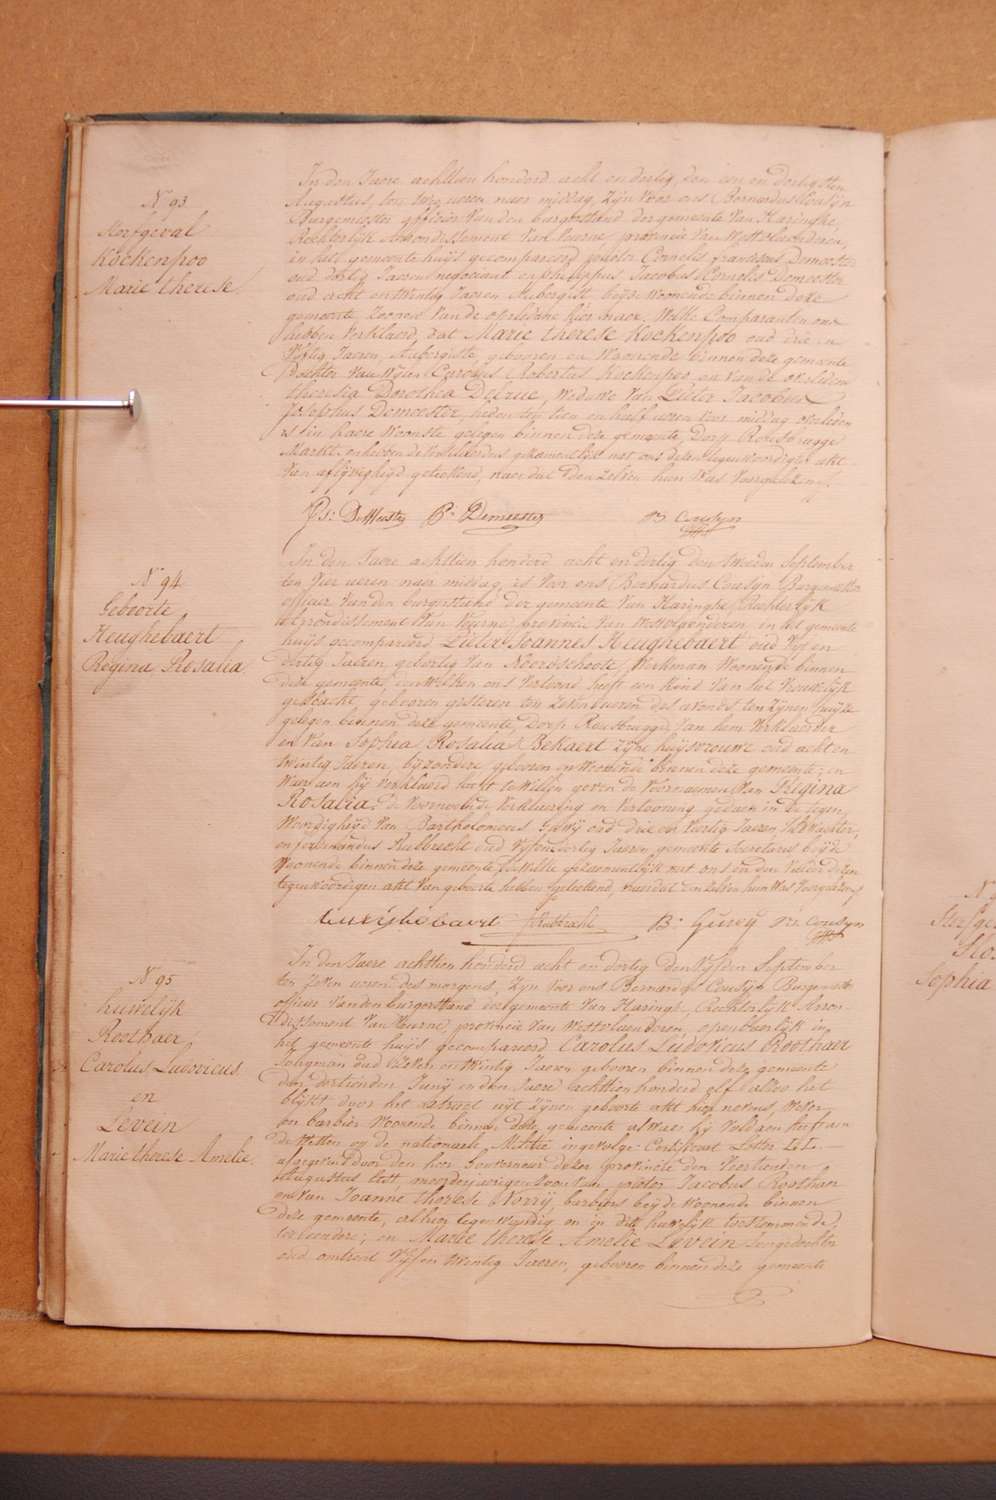 N 93
Sterfgeval
Kockenpoo
Marie therese
In den Jaere achttien honderd acht en dertig, den een en dertigsten
Augustus, ten twee ueren naer middag, zijn voor ons Bernardus Cousijn
Burgemeester officier van den burgerstand der gemeente van Haringhe
Rechterlijk Arrondissement van Veurne, provincie van Westvlaenderen,
in het gemeente huijs gecompareerd pieter Cornelis franciscus Demeester
oud dertig Jaeren negociant en philippus Jacobus Cornelis Demeester
oud acht en twintig Jaeren Aubergist beijde woonende binnen deze
gemeente zoonen van de overledene hier naer, Welke Comparanten ons
hebben verklaerd, dat Marie therese Kockenpoo oud drie en
vijftig Jaeren, Aubergiste, gebooren en woonende binnen deze gemeente
dochter van wijlen Carolus Robertus Kockenpoo, en van de overledene
theresia Dorothea Delrue, weduwe van Pieter Jacobus
Josephus Demeester, heden ten tien en half ueren voor middag overleden
is in haere wooonste gelegen binnen deze gemeente, Dorp Rousbrugge
Markt, en hebben de verklaerders gezamentlijk met ons deze tegenwoordigen akt
van aflijvigheijd geteekend, naer dat den zelven hun was voorgelezen.
Ps: D Meester P: Demeester B Cousijn
N 94
Geboorte
Heughebaert
Regina Rosalia
In den Jaere achttien honderd acht en dertig den tweeden September
ten vier ueren naer middag, is voor ons Bernardus Cousijn Burgemeester
officier van den burgerstand der gemeente van Haringhe Rechterlijk
Arrondissement van Veurne, provincie van Westvlaenderen, in het gemeente
huijs gecompareerd Pieter Joannes Heughebaert oud vijf en
dertig Jaeren, geboortig van Noordschoote, Werkman woonende binnen
deze gemeente, den welken ons vertoond heeft een kind van het vrouwelijk
geslacht, gebooren gisteren ten zeven ueren des avonds ten zijnen huijze
gelegen binnen deze gemeente, Dorp Rousbrugge, van hem verklaerder
en van Sophia Rosalia Bekaert zijne huijsvrouwe oud acht en
twintig Jaeren, bijzondere gebooren en woonende binnen deze gemeente, en
waer aen hij verklaerd heeft te willen geven de voornaemen van Regina
Rosalia; de voornoemde verklaering en vertooning gedaen in de tegen
woordigheijd van Bartholomeus Gusij oud drie en veertig Jaeren, Wachter,
en ferdinandus Rubbrecht oud vijf en dertig Jaeren, gemeente Secretaris beijde
woonende binnen deze gemeente, de welke gezamentlijk met ons en den vader dezen
tegenwoordigen akt van geboorte hebben geteekend, naer dat den zelven hun was voorgelezen
heughebaert f Rubbrecht B: Gusey B: Cousijn
N 95
huwelijk
Roothaer
Carolus Ludovicus
en
Levein
Marie therese Amelie
In den Jaere achttien honderd acht en dertig den vijfden September
ten zeven ueren des morgens, zijn voor ons Bernardus Cousijn Burgemeester
officier van den burgerstand der gemeente van Haringhe, Rechterlijk Arron
dissement van Veurne, provincie van Westvlaenderen, openbaerlijk in
het gemeente huijs gecompareerd Carolus Ludovicus Roothaer
Jongman oud zeven en twintig Jaeren gebooren binnen deze gemeente
den dertienden Junij in den Jaere achttien honderd elf alzoo het
blijkt door het extract uijt zijnen geboorte akt hier nevens, wever
en barbier woonende binnen deze gemeente alwaer hij voldaen heeft aen
de wetten op de nationaele Militie ingevolge Certificaet Letter LL.
afgegeven door den heer Gouverneur dezer provincie den veertienden
Augustus lest, meerderjaerigen zoon van pieter Jacobus Roothaer
en van Joanne therese Norrij, barbiers beijde woonende binnen
deze gemeente, alhier tegenwoordig en in dit huwelijk toestemmende,
ter eendere; en Marie therese Amelie Levein Jongedochter
oud omtrent vijf en twintig Jaeren, gebooren binnen deze gemeente
N
Sterfge
Slos
Sophia